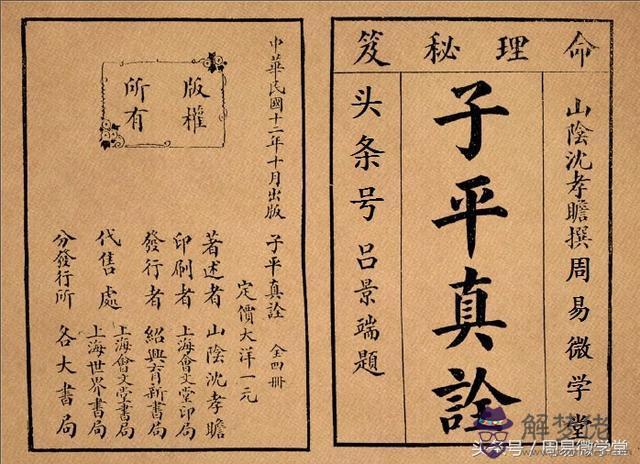 命理秘笈
山陰沈孝瞻撰周易微学堂
子平真詮
头条号吕景端題
中華民國十二年十月出版
版權
所有
子平真詮 全四冊
定價大洋一元
著述者 山陰沈孝瞻
印刷者 上海會文堂印局
發行者 紹興育新書局
代售處 上海會文堂書局
上海世界書局
分發行所 各大書局
解梦佬
头条号／周易微学堂